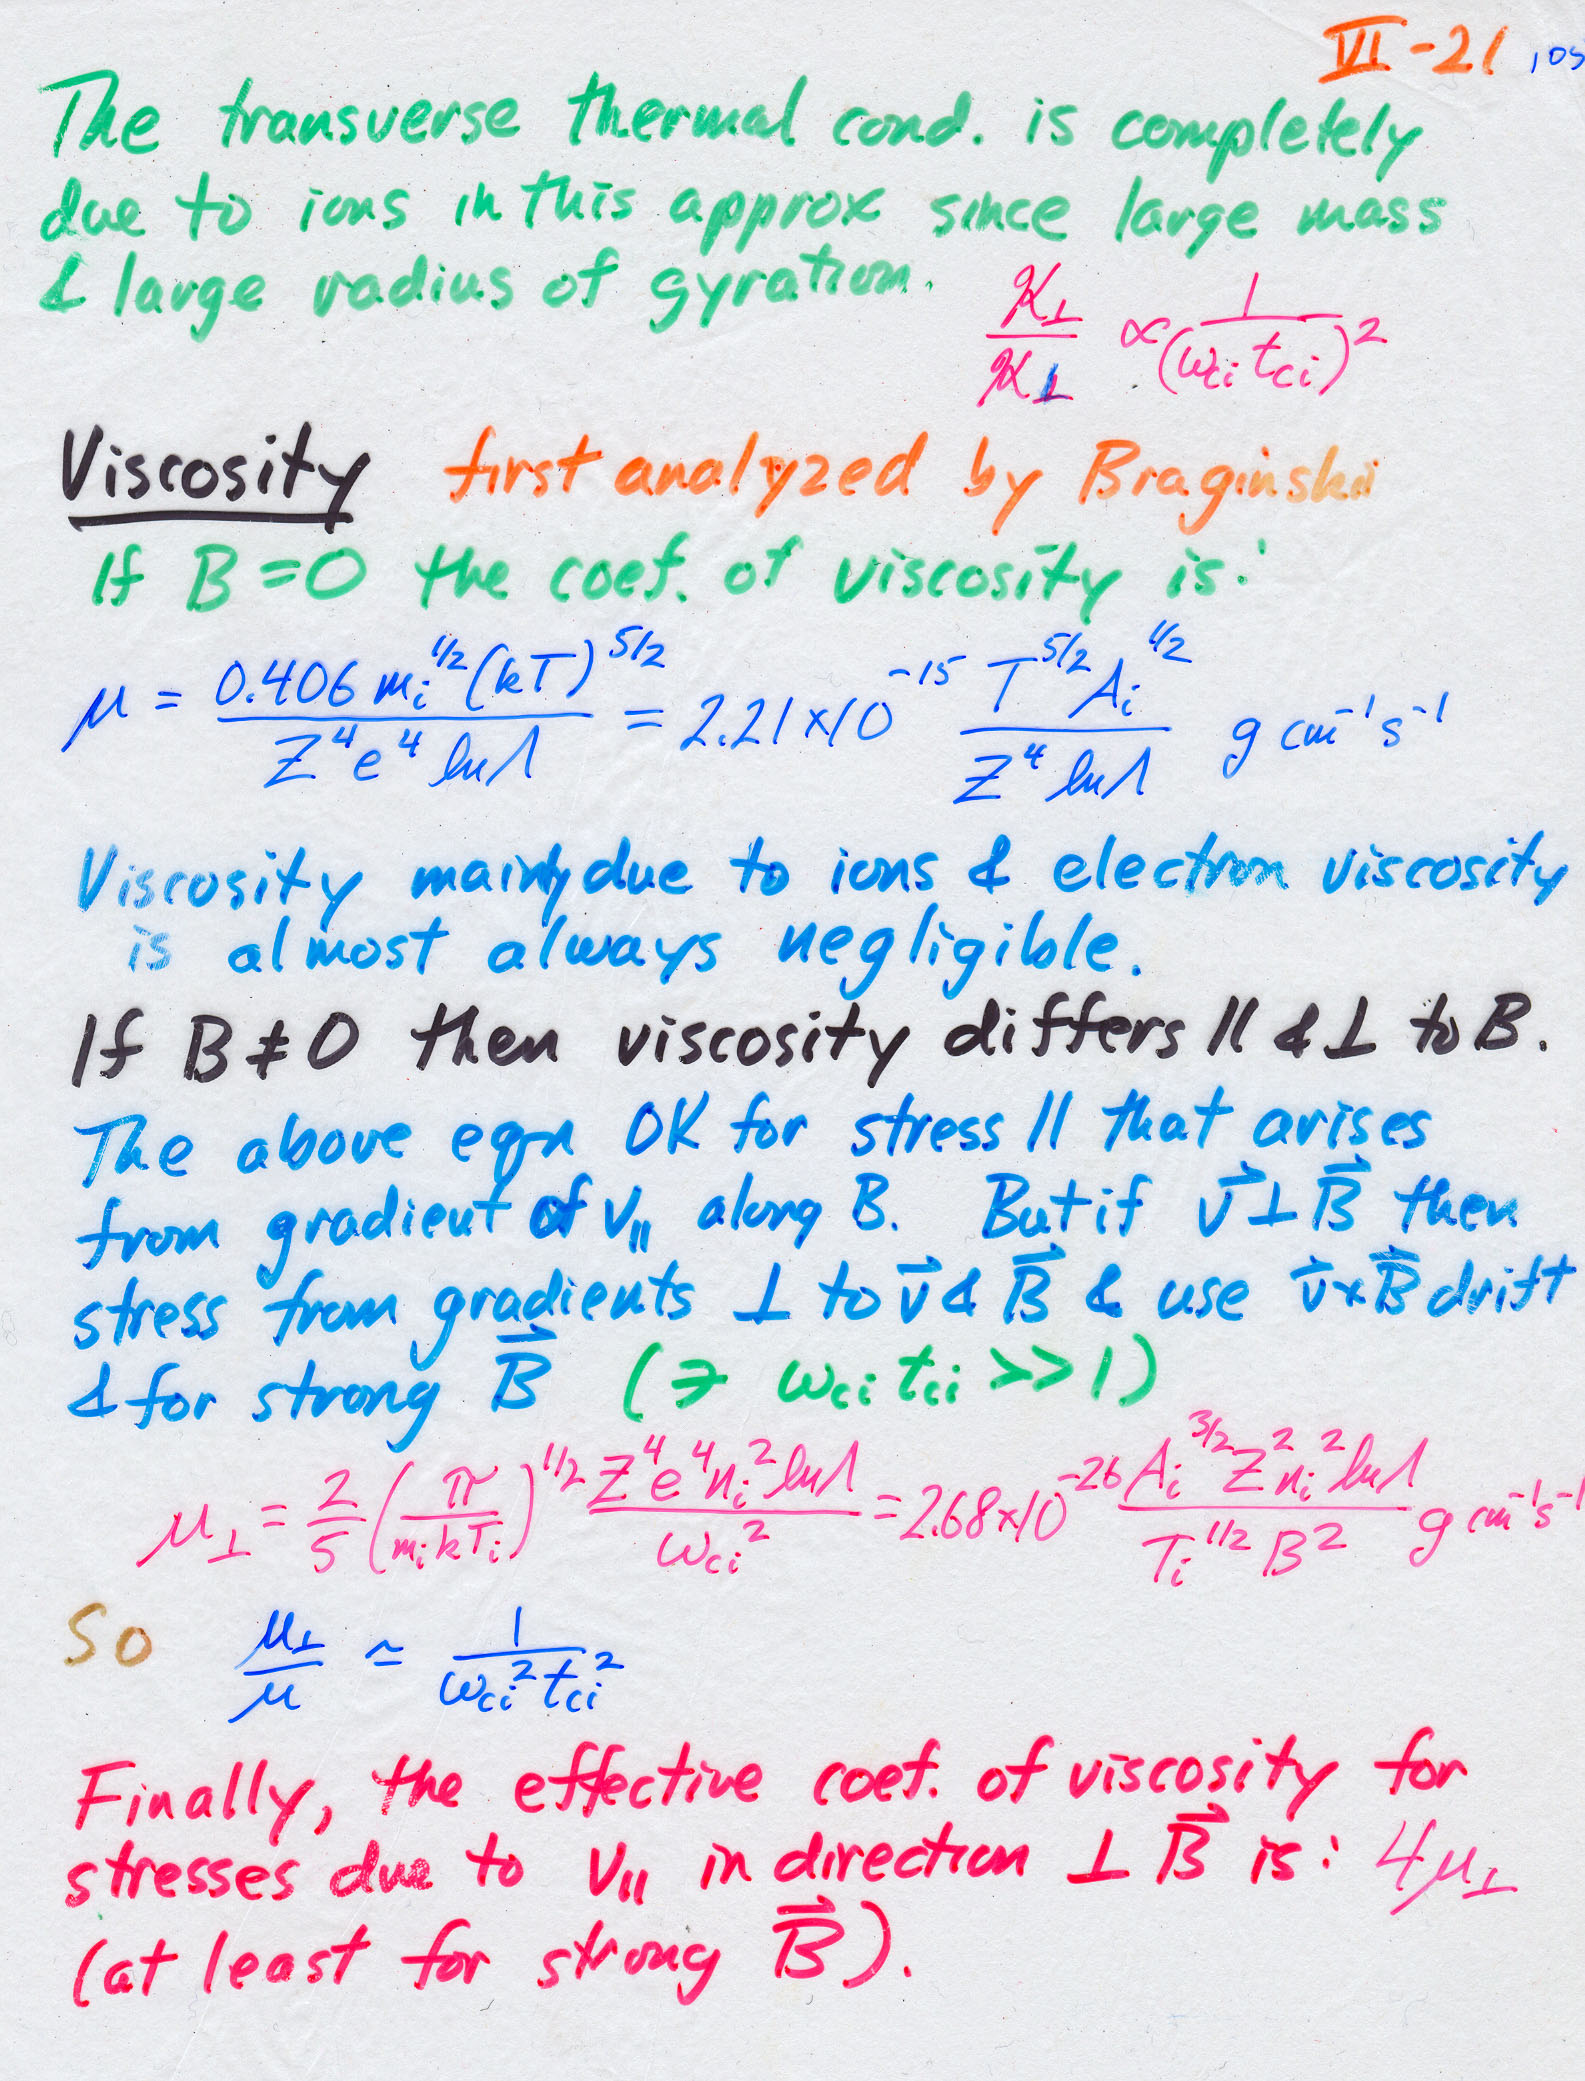 VI-21 105
The transverse thermal cond. is completely
due to ions in this approx since large mass
& large radius of gyration.
K⊥/K⊥ ∝ 1/(ω_ci t_ci)²
Viscosity first analyzed by Braginskii
If B=0 the coef. of viscosity is:
μ = 0.406 m_i^{1/2} (kT)^{5/2} / Z⁴e⁴ lnΛ = 2.21×10^{-15} T^{5/2} A_i^{1/2} / Z⁴ lnΛ g cm⁻¹ s⁻¹
Viscosity mainly due to ions & electron viscosity
is almost always negligible.
If B≠0 then viscosity differs || & ⊥ to B.
The above eqn OK for stress || that arises
from gradient of v_|| along B. But if v⃗⊥B⃗ then
stress from gradients ⊥ to v⃗ & B⃗ & use v⃗×B⃗ drift
& for strong B⃗ (∋ ω_ci t_ci >>1)
μ⊥ = 2/5 (π/m_i kT_i)^{1/2} Z⁴e⁴n_i² lnΛ / ω_ci² = 2.68×10^{-26} A_i^{3/2} Z² n_i² lnΛ / T_i^{1/2} B² g cm⁻¹ s⁻¹
So μ⊥/μ ≃ 1/ω_ci² t_ci²
Finally, the effective coef. of viscosity for
stresses due to v_|| in direction ⊥ B⃗ is: 4μ⊥
(at least for strong B⃗).